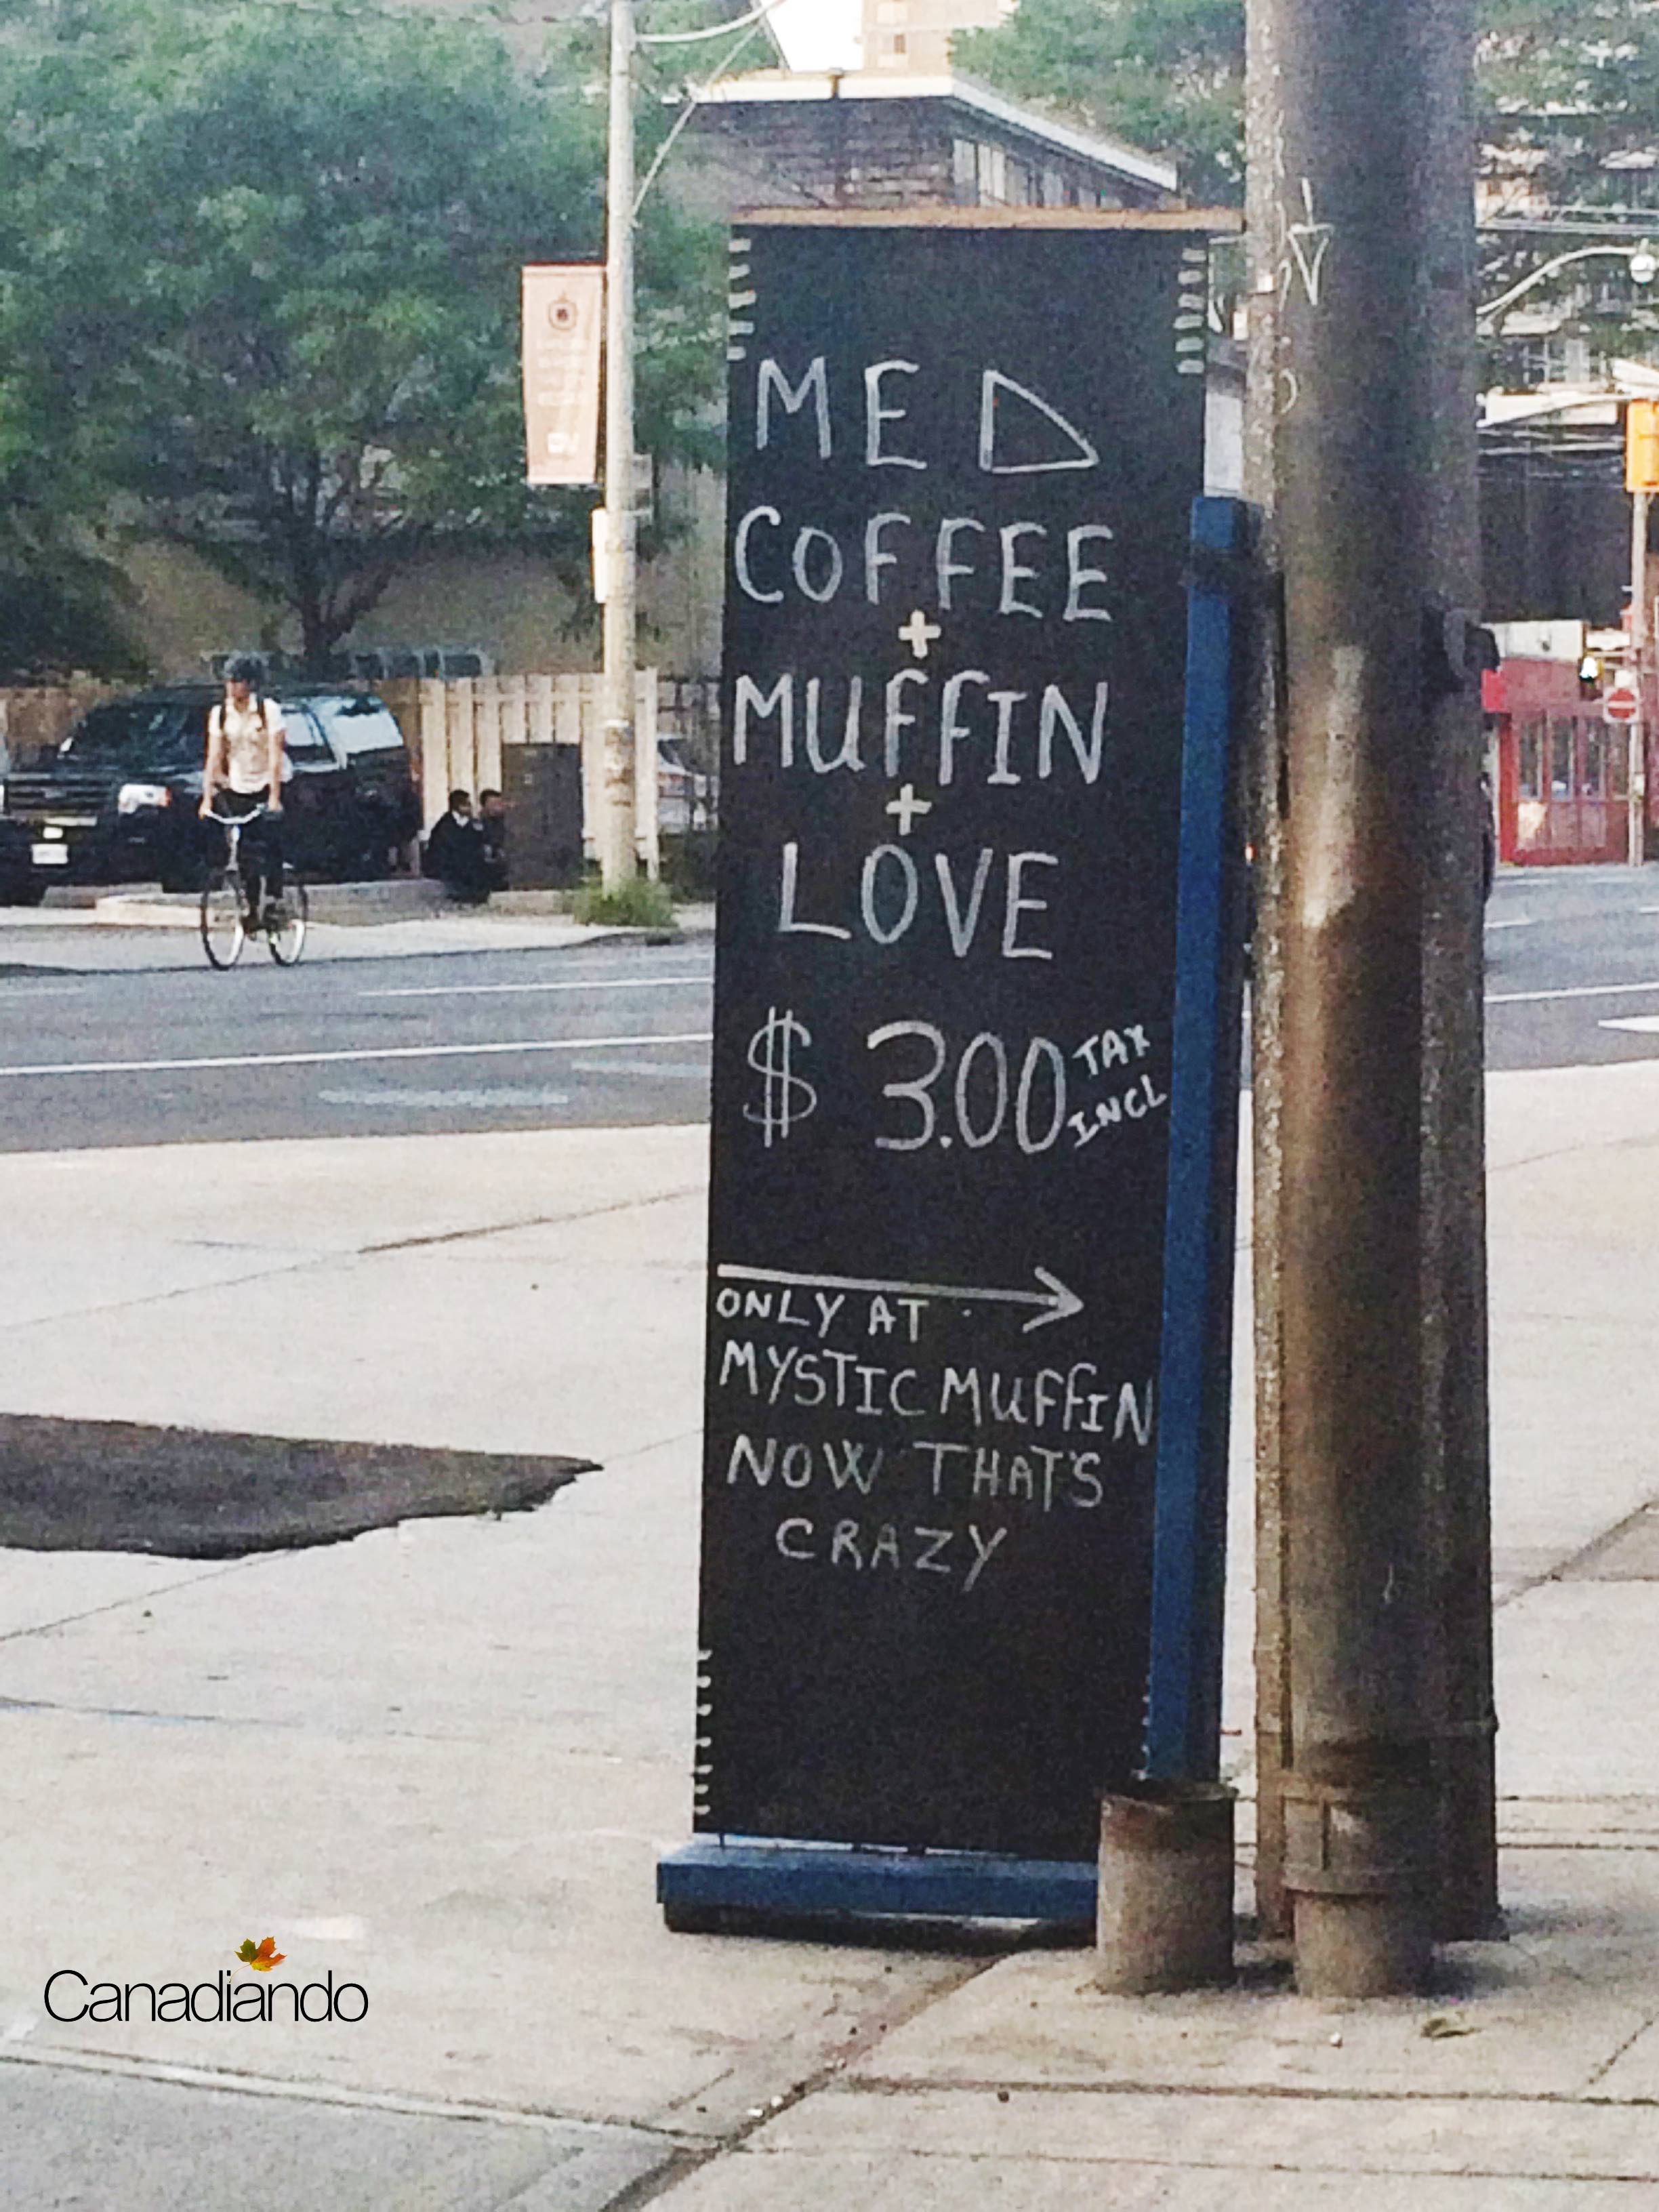 MED
COFFEE
+
MUFFIN
+
LOVE
$ 3.00 TAX INCL
ONLY AT
MYSTIC MUFFIN
NOW THAT'S
CRAZY
Canadiando